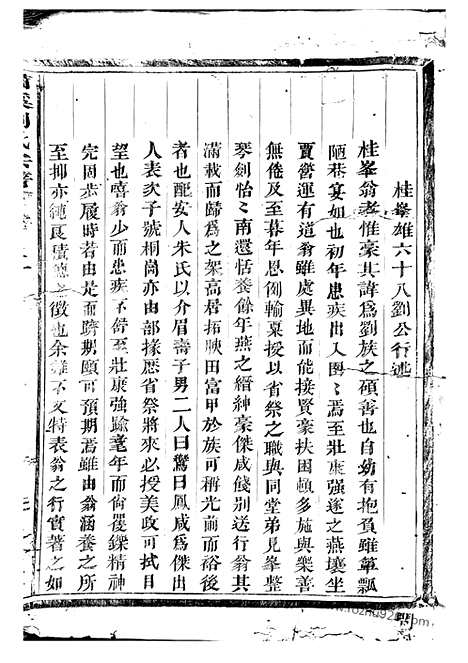 桂峯雄六十八劉公行述
桂峯翁者惟豪其諱爲劉族之碩善也自幼有抱負雖簞瓢
陋巷宴如也初年患疾出入圈〻焉至壯康強遂之燕壤坐
賈營運有道翁雖處異地而能接賢豪扶困頓多施與樂善
無倦及至暮年恩例輸粟授以省祭之職與同堂弟見峯整
琴劍怡〻南還恬養餘年燕之縉紳豪傑咸餞別送行翁其
滿載而歸爲之架高居拓腴田富甲於族可稱光前而裕後
者也配安人朱氏以介眉壽子男二人曰鸞曰鳳咸爲傑出
人表次子號桐崗亦由部掾應省祭將來必授美政可拭目
望也嘻翁少而患疾不倦至壯康強踰耄年而尙矍鑠精神
完固恭履時若由是而躋期頤可預期焉雖由翁涵養之所
至抑亦純良積德之徵也余雖不文特表翁之行實著之如
劉氏宗譜
www.fozhu920.com